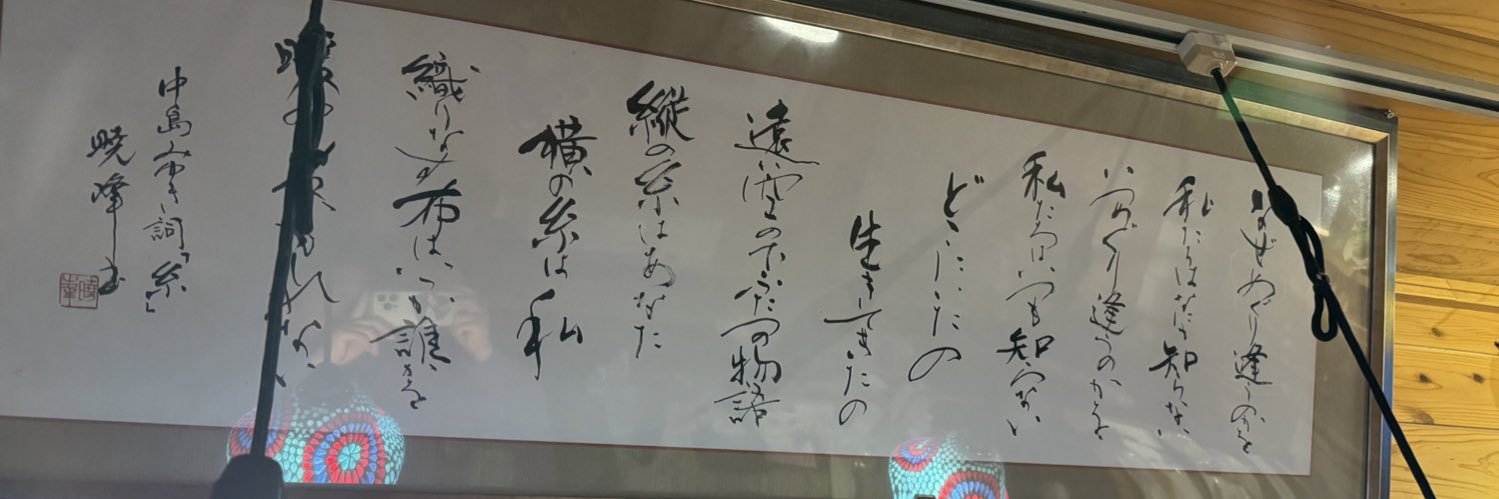 なぜめぐり逢うのかを
私たちはなにも知らない
いつめぐり逢うのかを
私たちはいつも知らない
どこにいたの
生きてきたの
遠い空の下ふたつの物語
縦の糸はあなた
横の糸は私
織りなす布はいつか誰かを
しれない
中島みゆき詞「糸」
暁峰書